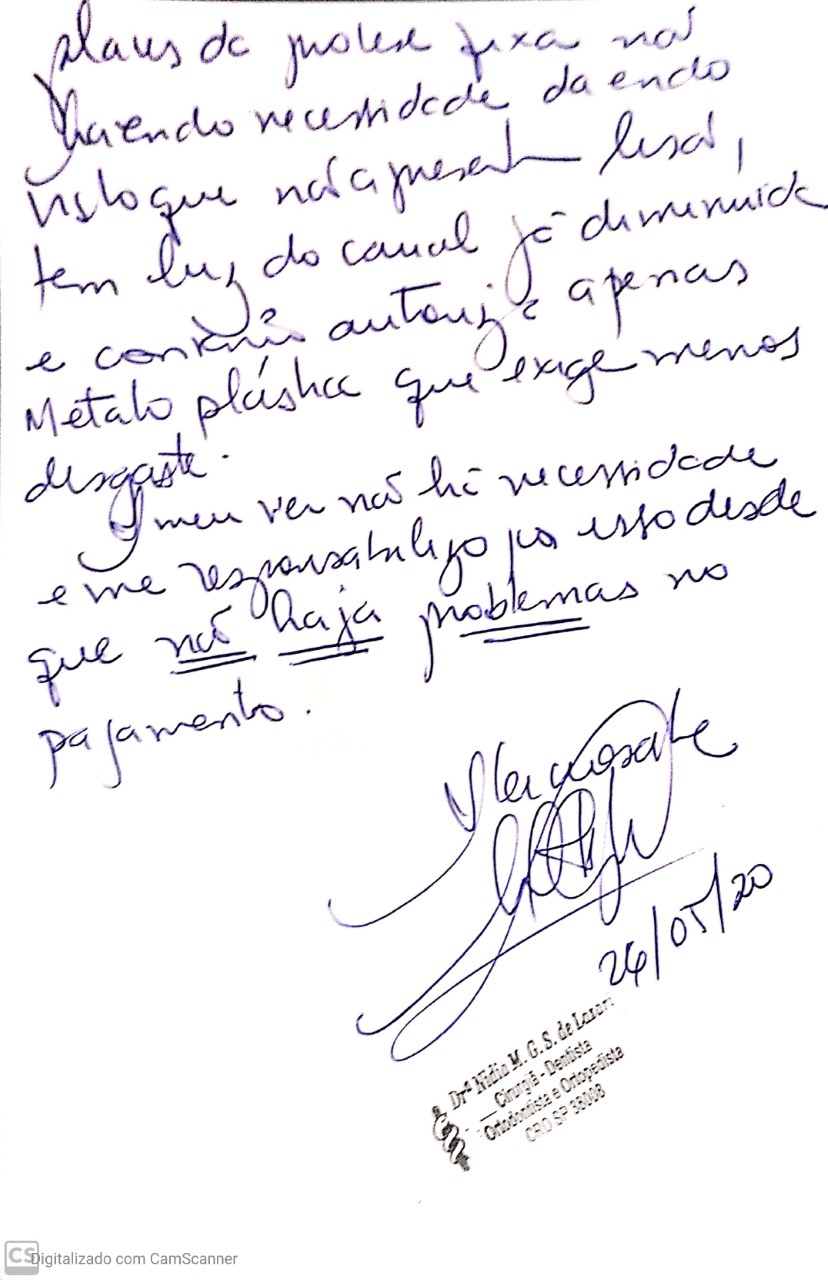 planos da prótese fixa não
havendo necessidade da endo
visto que não apresenta lesão,
tem luz do canal já diminuida
e convênio autoriza apenas
Metalo plástica que exige menos
desgaste.
A meu ver não há necessidade
e me responsabilizo por isso desde
que não haja problemas no
pagamento.
Atenciosamente
26/05/20
Drª Nidia M. G. S. de Lazari
Cirurgiã - Dentista
Ortodontista e Ortopedista
CRO SP 38008
CS Digitalizado com CamScanner